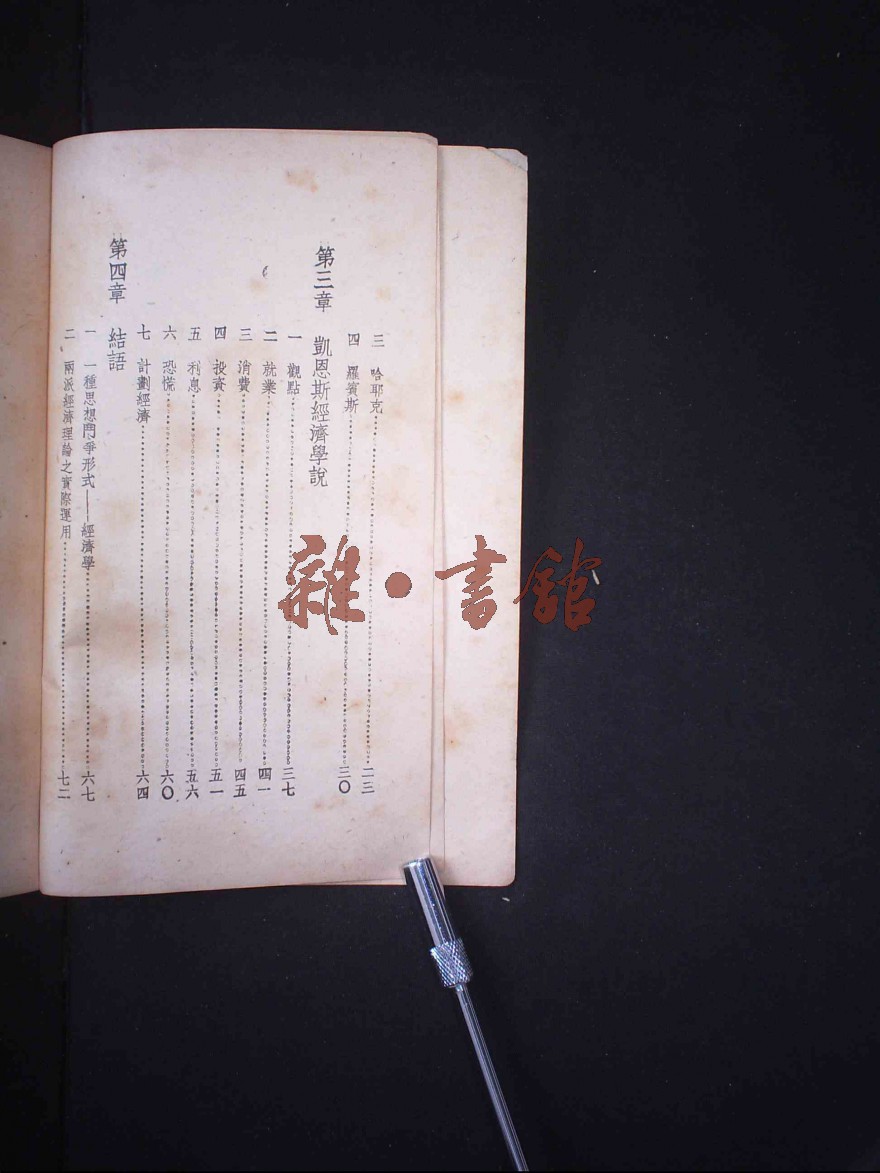 三 哈耶克 二三
四 羅賓斯 三〇
第三章 凱恩斯經濟學說
一 觀點 三七
二 就業 四一
三 消費 四五
四 投資 五一
五 利息 五六
六 恐慌 六〇
七 計劃經濟 六四
第四章 結語
一 一種思想鬥爭形式——經濟學 六七
二 兩派經濟理論之實際運用 七二
雜·書館